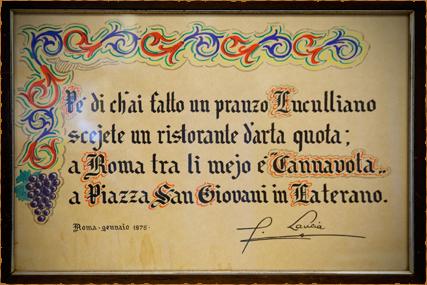 Pe' di ch'ai fatto un pranzo Luculliano
scejete un ristorante d'arta quota;
a Roma tra li mejo é "Cannavota„
a Piazza San Giovani in Laterano.
Roma·gennaio 1975·